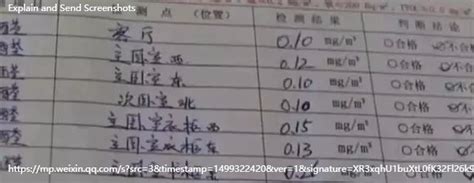 Explain and Send Screenshots
测 点 （位置） 检 测 结 果 判 断 结 论
客厅 0.10 mg/m³ ○合格
主卧室西 0.12 mg/m³ ○合格
主卧室东 0.10 mg/m³ ○合格
次卧室北 0.10 mg/m³ ○合格
主卧室衣柜西 0.15 mg/m³ ○合格
主卧室衣柜东 0.13 mg/m³ ○合格
https://mp.weixin.qq.com/s?src=3&timestamp=1499322420&ver=1&signature=XR3xqhU1buXtL0fK32Fl26l